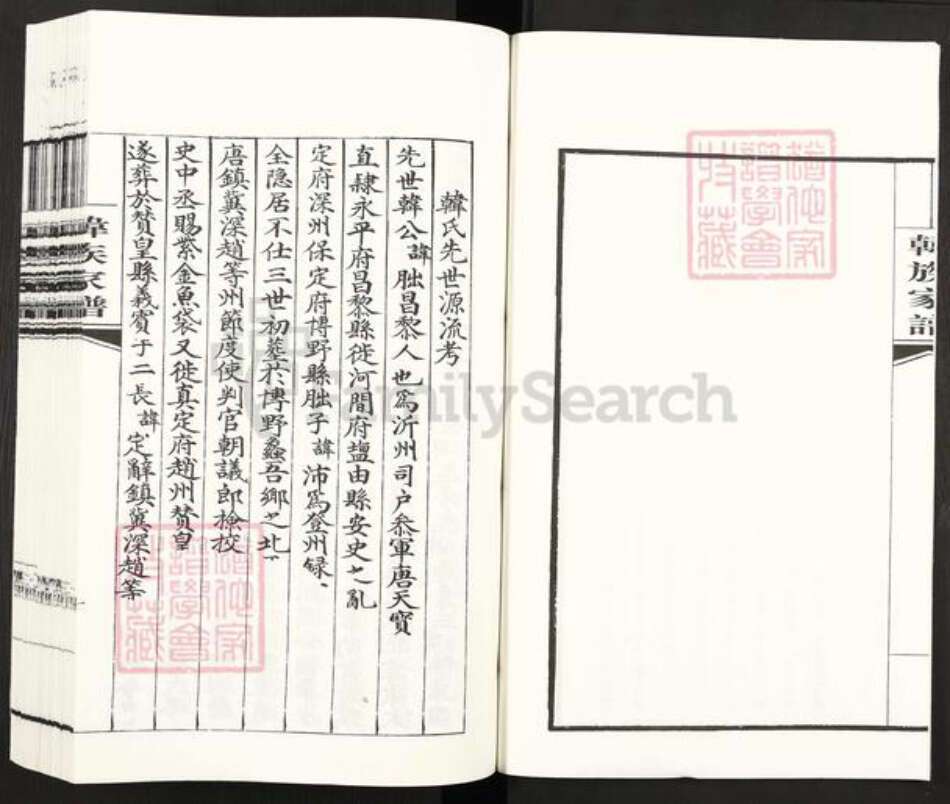 韓族家譜
韓氏先世源流考
先世韓公諱朏昌黎人也爲沂州司户叅軍唐天寶
直隷永平府昌黎縣徙河間府塩由縣安史之亂
定府深州保定府博野縣朏子諱沛爲登州録
全隐居不仕三世初塟於博野蠡吾鄉之北
唐鎮冀深趙等州節度使判官朝議郎檢挍
史中丞賜紫金魚袋又徙真定府趙州賛皇
遂葬於賛皇縣義賓于二長諱定辭鎮冀深趙等
家譜
FamilySearch
譜學會
特藏
譜學會
特藏